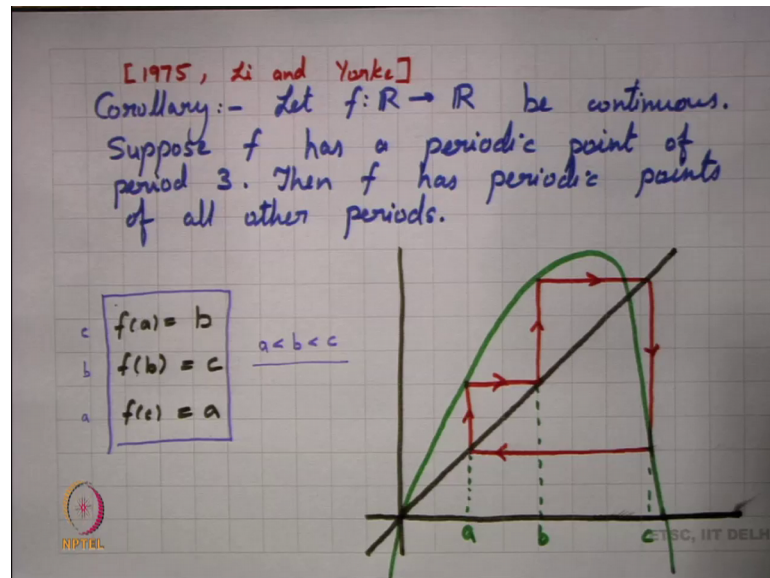 [1975, Li and Yorke]
Corollary:- Let f: ℝ → ℝ be continuous.
Suppose f has a periodic point of
period 3. Then f has periodic points
of all other periods.
c f(a) = b
b f(b) = c
a f(c) = a
a < b < c
a b c
NPTEL
ETSC, IIT DELHI